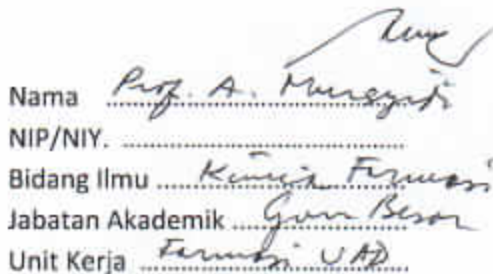 Nama Prof. A. Mursyidi
NIP/NIY. ................................
Bidang Ilmu Kimia Farmasi
Jabatan Akademik Guru Besar
Unit Kerja Farmasi UAD